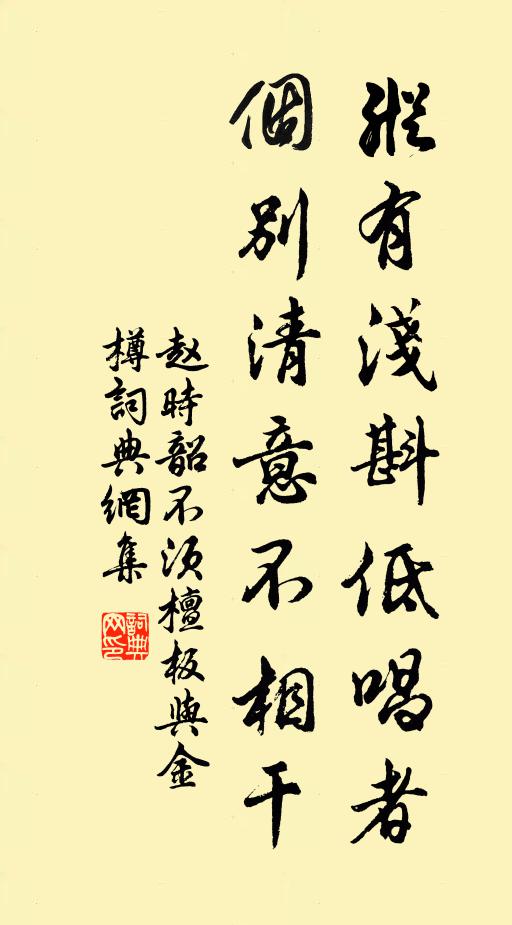 縱有淺斟低唱者
個別清意不相干
赵時韶不须檀板與金
樽詞典網集
詞典网印